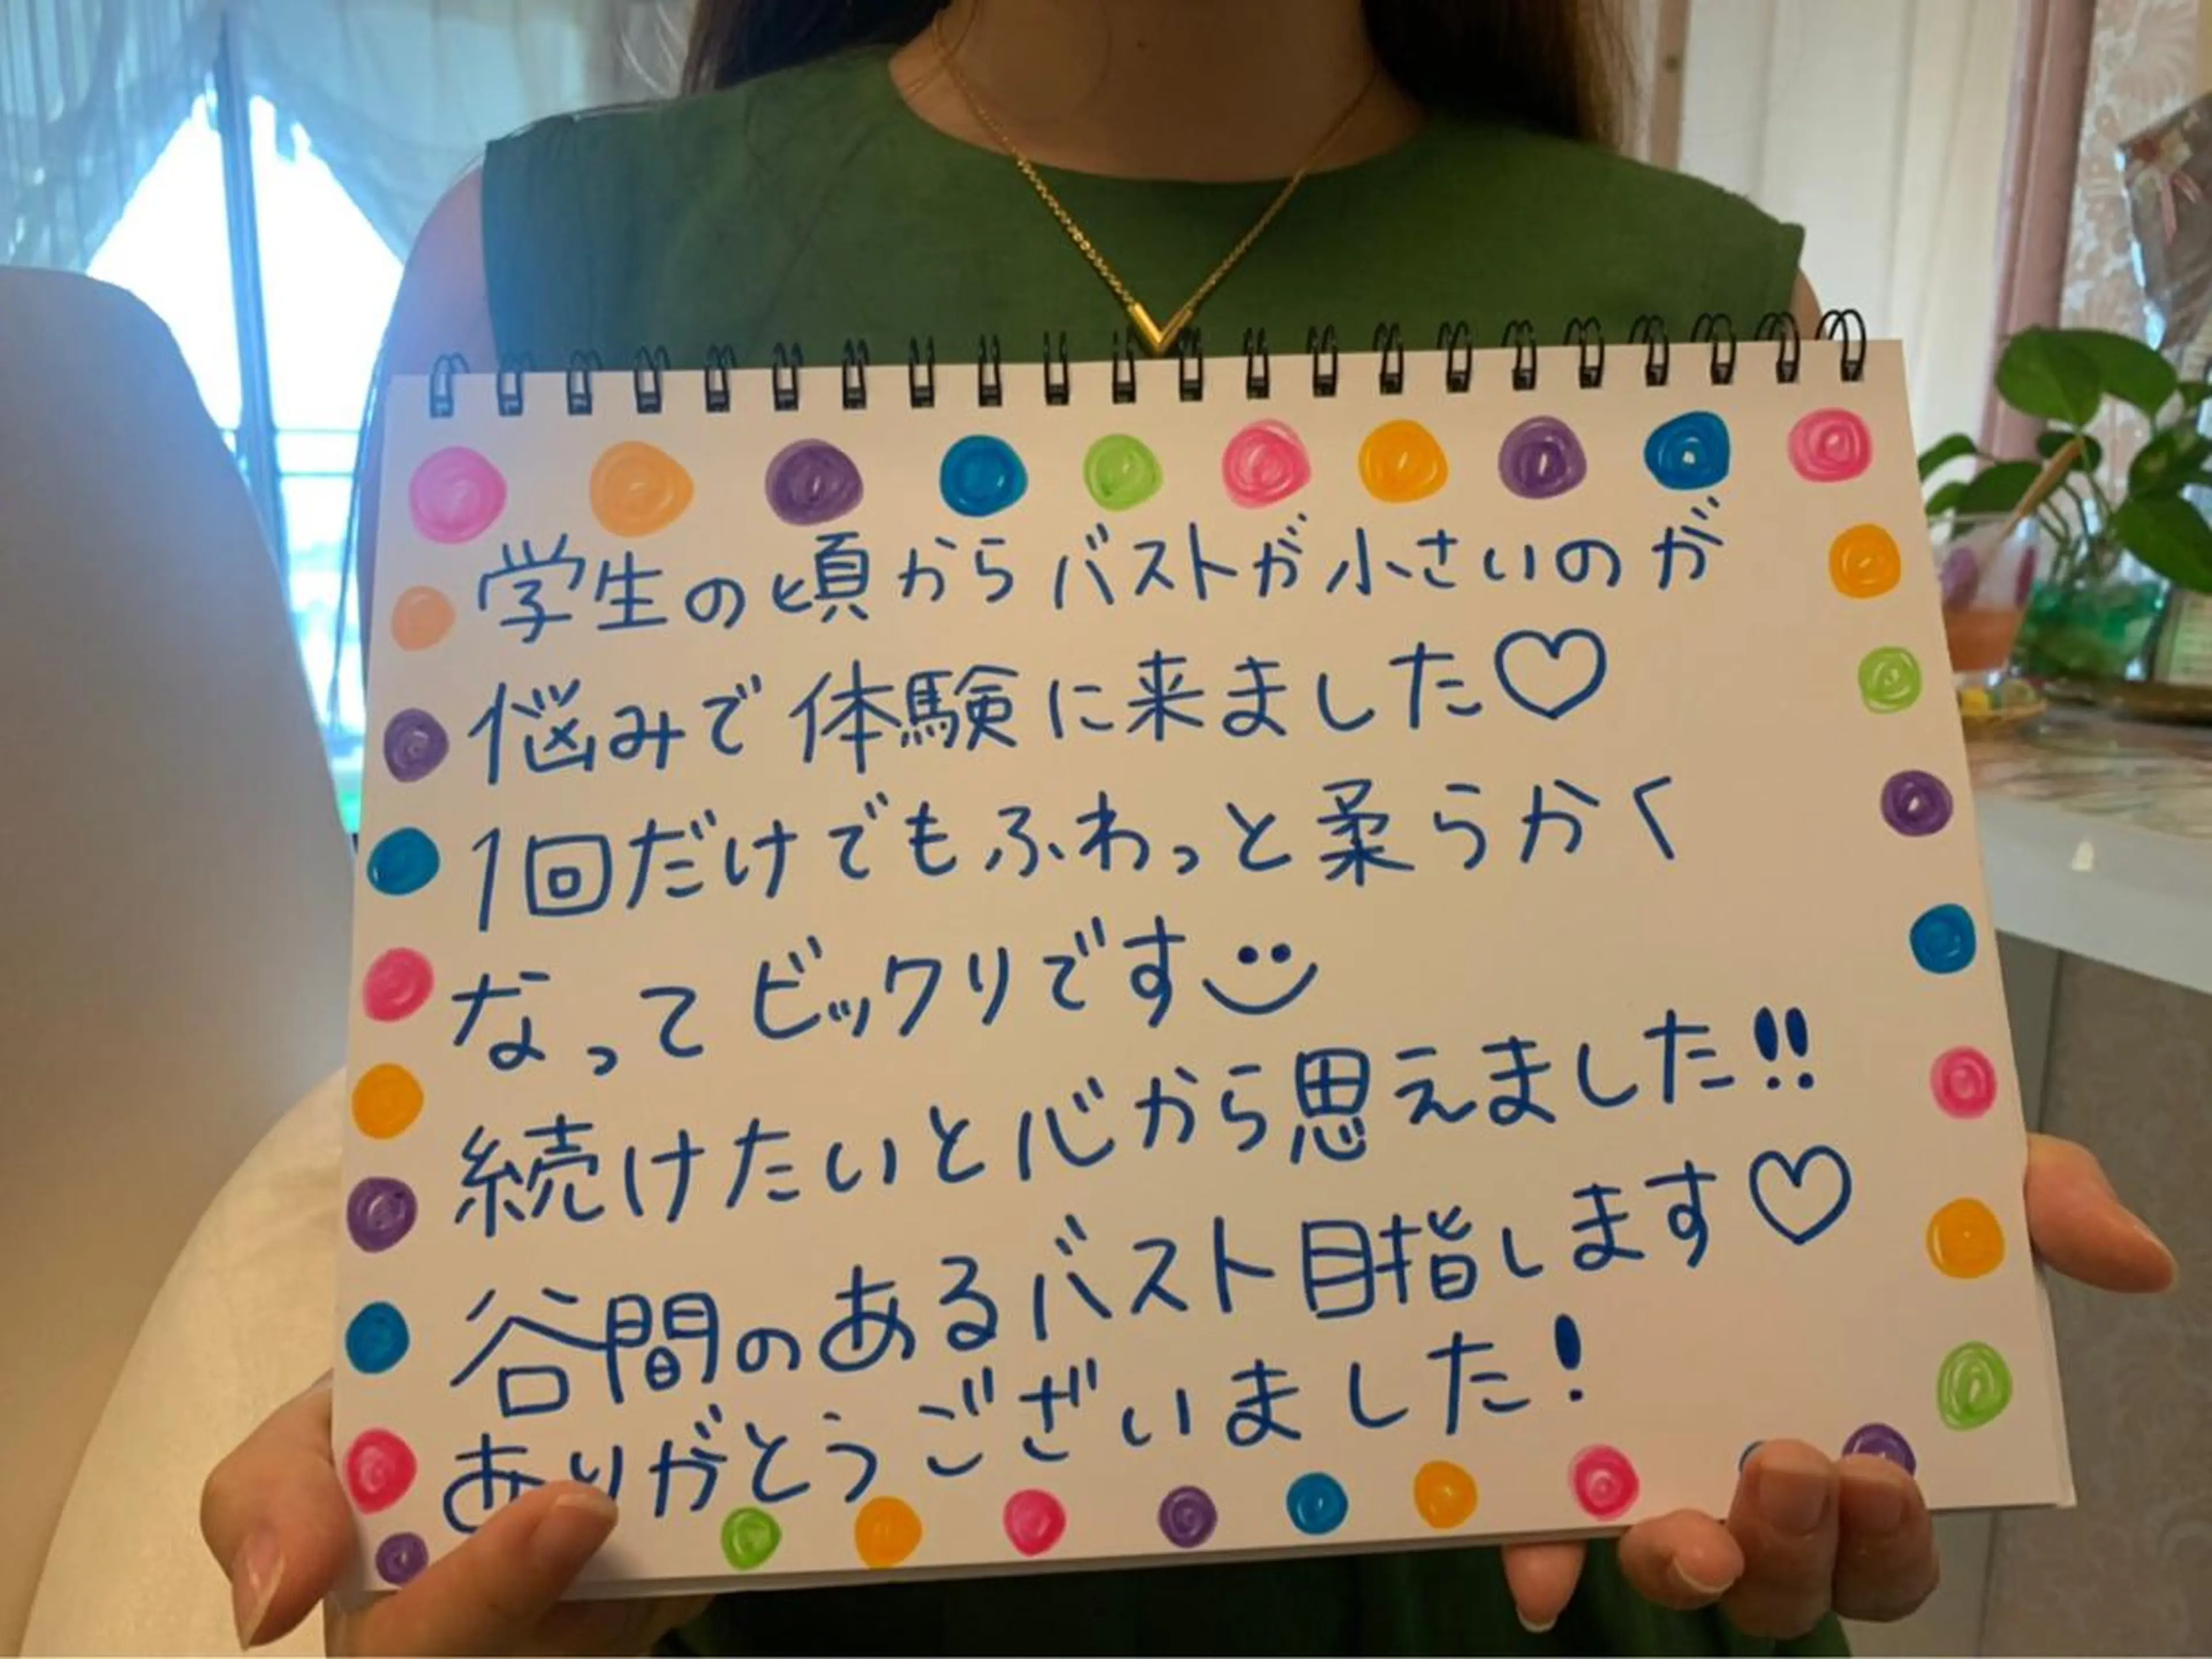 学生の頃からバストが小さいのが
悩みで体験に来ました♡
1回だけでもふわっと柔らかく
なってビックリです
続けたいと心から思えました!!
谷間のあるバスト目指します♡
ありがとうございました!